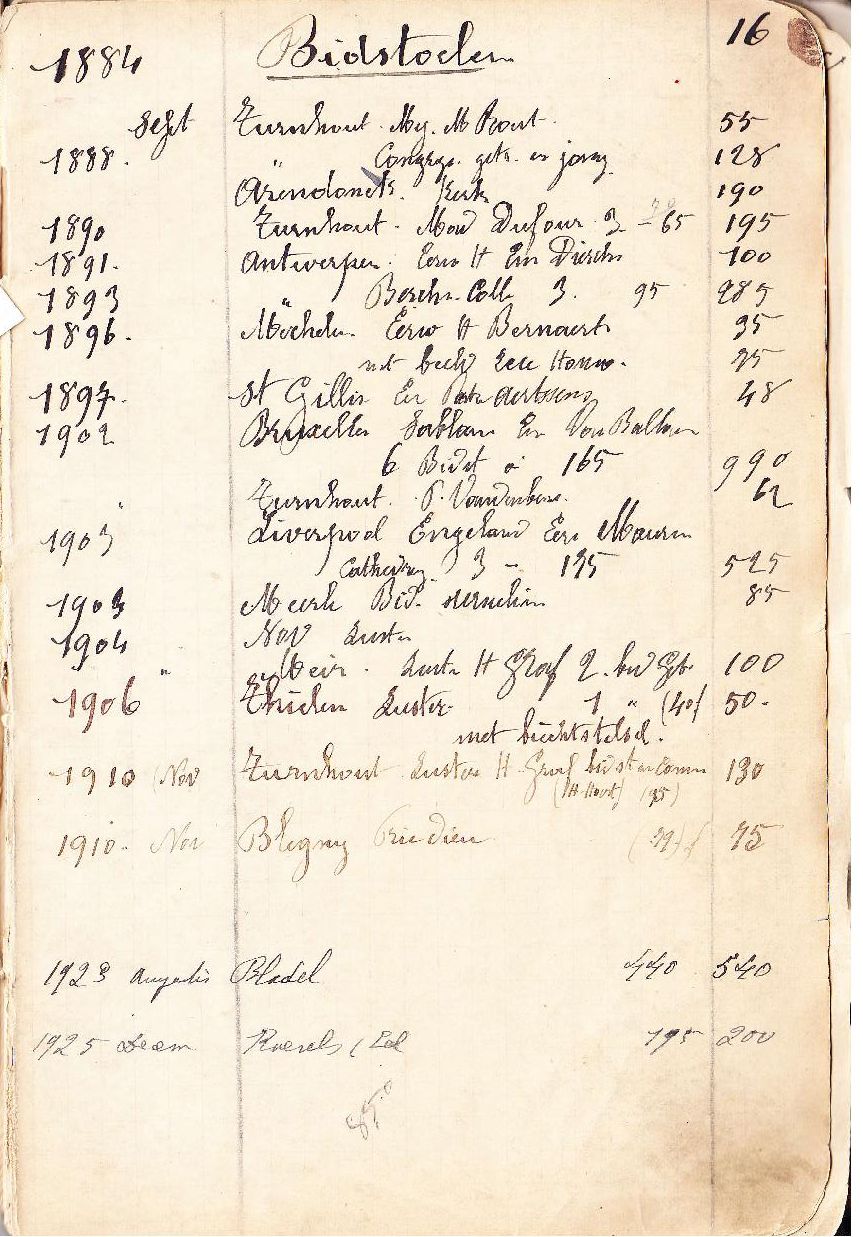 16
1884 Bidstoelen
Sept Turnhout. Mej. M 55
1888. " Congreg. getr. en jong. 128
Arendonck. Kerk 190
1890 Turnhout. Mad Dufour 3 - 65 195
1891. Antwerpen. Eerw H Em Dierckx 100
1893 " Berch. Coll 3. 95 285
1896. Mechelen Eerw H Bernaerts 35
met Eeuw. 25
1897. St Gillis Eer Aertssens 48
1902 Bruxelles Sablon Er Van Ballaer
6 Bidst à 165 990
" Turnhout. P. Vandenb 62
1903 Liverpool Engeland Eer. Maurin
Cathedr. 3 - 175 525
1903 Meerle Bid. 85
1904 Nov Luster
" Weir. Luster H Graf 2. bid 100
1906 Luster 1 " (40) 50.
met biechtstelsel.
1910 (Nov Turnhout Luster H. Graf bidst en Comm 130
(H Hart) (95)
1910. Nov Bligny Prie dieu 75
1923 Augustus Bladel 440 540
1925 Decem Roevels 195 200
850